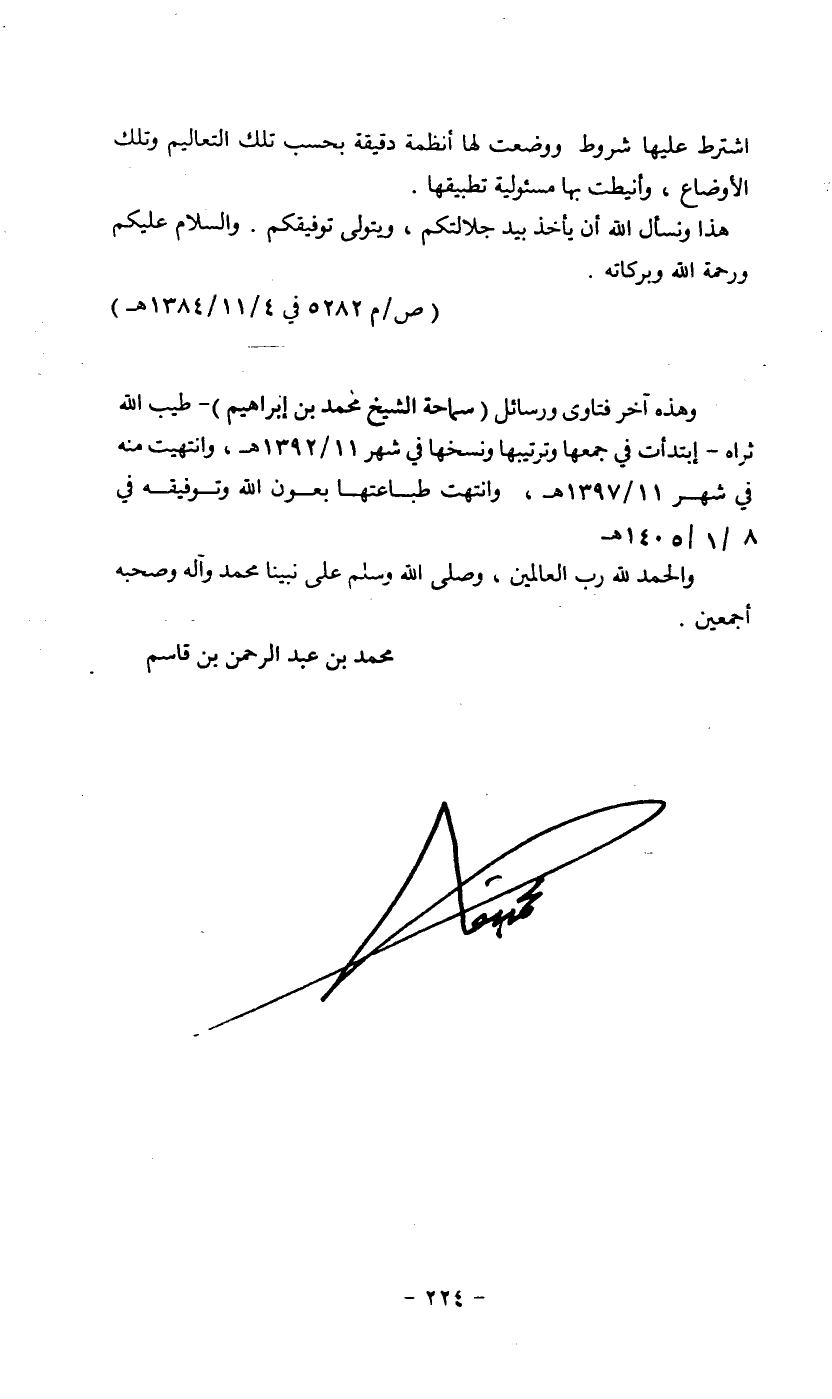 اشترط عليها شروط ووضعت لها أنظمة دقيقة بحسب تلك التعاليم وتلك
الأوضاع ، وأنيطت بها مسئولية تطبيقها .
هذا ونسأل الله أن يأخذ بيد جلالتكم ، ويتولى توفيقكم . والسلام عليكم
ورحمة الله وبركاته .
( ص/م ٥٢٨٢ في ١٣٨٤/١١/٤هـ )
وهذه آخر فتاوى ورسائل ( سماحة الشيخ محمد بن إبراهيم )- طيب الله
ثراه - إبتدأت في جمعها وترتيبها ونسخها في شهر ١٣٩٢/١١هـ ، وانتهيت منه
في شهـــر ١٣٩٧/١١هـ ، وانتهت طبـاعتهـا بعـون الله وتـوفيقـه في
٨ /١ /١٤٠٥هـ
والحمد لله رب العالمين ، وصلى الله وسلم على نبينا محمد وآله وصحبه
أجمعين .
محمد بن عبد الرحمن بن قاسم
- ٢٢٤ -